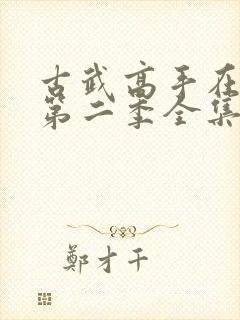 古武高手在
第二季全集
鄭才千